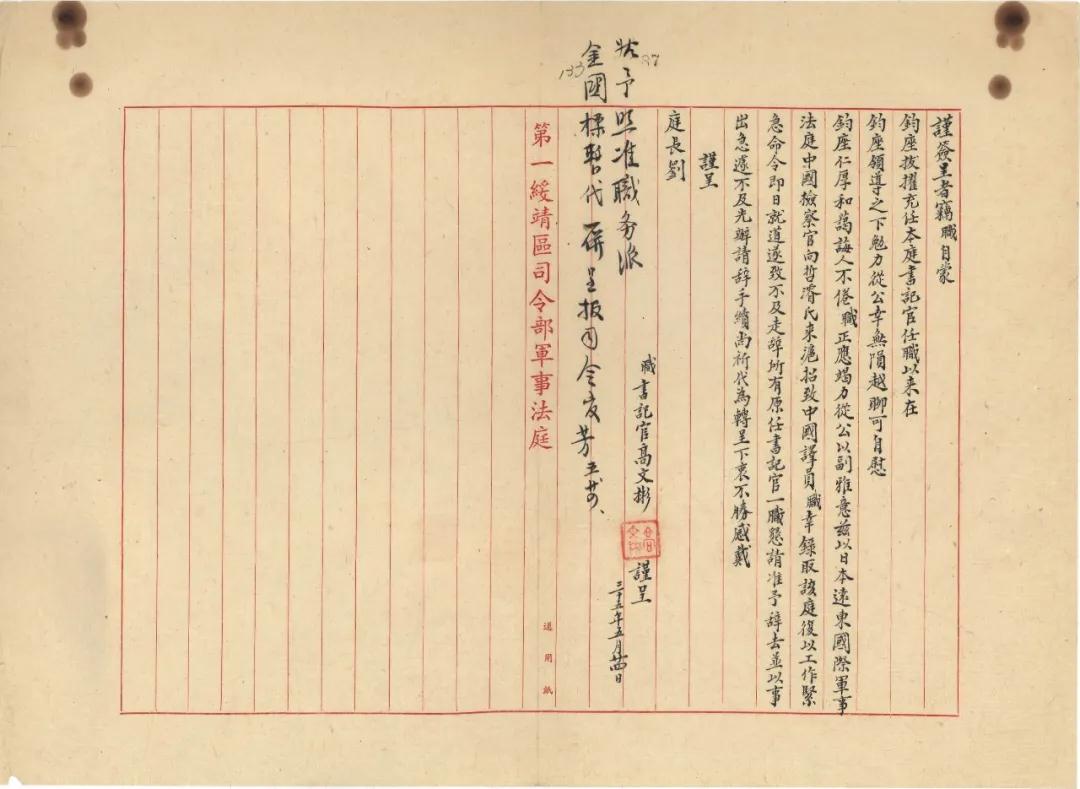 謹簽呈者竊職自蒙
鈞座拔擢充任本庭書記官任職以来在
鈞座領導之下勉力從公幸無隕越聊可自慰
鈞座仁厚和藹誨人不倦職正應竭力從公以副雅意兹以日本遠東國際軍事
法庭中國檢察官向哲濬氏来滬招致中國譯員職幸錄取該庭復以工作緊
急命令即日就道遂致不及走辞所有原任書記官一職懇請准予辞去並以事
出急遽不及先辦請辞手續尚祈代為轉呈下衷不勝感戴
謹呈
庭長劉
職書記官高文彬
謹呈
三十五年五月廿四日
予照准職务派
金國標暫代併呈报司令
133
87
第一綏靖區司令部軍事法庭
通用紙